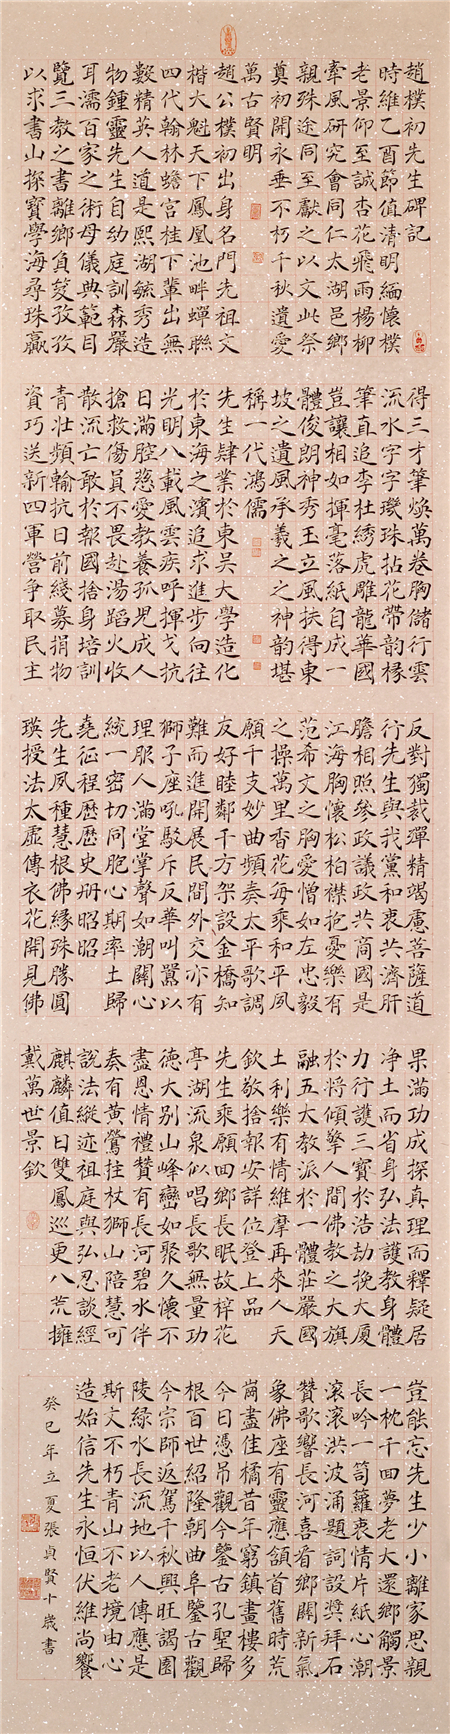 趙樸初先生碑記
時維乙酉節值清明緬懷樸
老景仰至誠杏花飛雨楊柳
牽風研究會同仁太湖邑鄉
親殊途同至獻之以文此祭
奠初開永垂不朽千秋遺愛
萬古賢明
趙公樸初出身名門先祖文
楷大魁天下鳳凰池畔蟬聯
四代翰林蟾宮桂下輩出無
數精英人道是熙湖毓秀造
物鍾靈先生自幼庭訓森嚴
耳濡百家之術母儀典範目
覽三教之書離鄉負笈孜孜
以求書山探寶學海尋珠贏
得三才筆煥萬卷胸儲行雲
流水字字璣珠拈花帶韵椽
筆直追李杜綉虎雕龍華國
豈讓相如揮毫落紙自成一
體俊朗神秀玉立風扶得東
坡之遺風承羲之之神韵堪
稱一代鴻儒
先生肄業於東吴大學造化
於東海之濱追求進步向往
光明八載風雲疾呼揮戈抗
日滿腔慈愛教養孤兒成人
搶救傷員不畏赴湯蹈火收
散流亡敢於報國捨身培訓
青壯頻輸抗日前綫募捐物
資巧送新四軍營争取民主
反對獨裁殫精竭慮菩薩道
行先生與我黨和衷共濟肝
膽相照參政議政共商國是
江海胸懷松柏襟抱憂樂有
范希文之胸愛憎如左忠毅
之操萬里香花每乘和平夙
願千支妙曲頻奏太平歌調
友好睦鄰千方架設金橋知
難而進開展民間外交亦有
獅子座吼駁斥反華叫囂以
理服人滿堂掌聲如潮關心
統一密切同胞心期率土歸
堯征程歷歷史册昭昭
先生夙種慧根佛緣殊勝圓
瑛授法太虛傳衣花開見佛
果滿功成探真理而釋疑居
净土而省身弘法護教身體
力行護三寶於浩劫挽大厦
於將傾擎人間佛教之大旗
融五大教派於一體莊嚴國
土利樂有情維摩再來人天
欽敬捨報安詳位登上品
先生乘願回鄉長眠故梓花
亭湖流泉似唱長歌無量功
德大别山峰巒如聚久懷不
盡恩情禮贊有長河碧水伴
奏有黄鶯拄杖獅山陪慧可
說法縱迹祖庭與弘忍談經
麒麟值日雙鳳巡更八荒擁
戴萬世景欽
豈能忘先生少小離家思親
一枕千回夢老大還鄉觸景
長吟一笴籮衷情片紙心潮
滚滚洪波涌題詞設奬拜石
贊歌響長河喜看鄉關新氣
象佛座有靈應頷首舊時荒
崗盡佳橘昔年窮鎮畫樓多
今日憑吊觀今鑒古孔聖歸
根百世紹隆朝曲阜鑒古觀
今宗師返駕千秋興旺謁園
陵緑水長流地以人傳應是
斯文不朽青山不老境由心
造始信先生永恒伏維尚饗
癸巳年立夏張貞賢十歲書